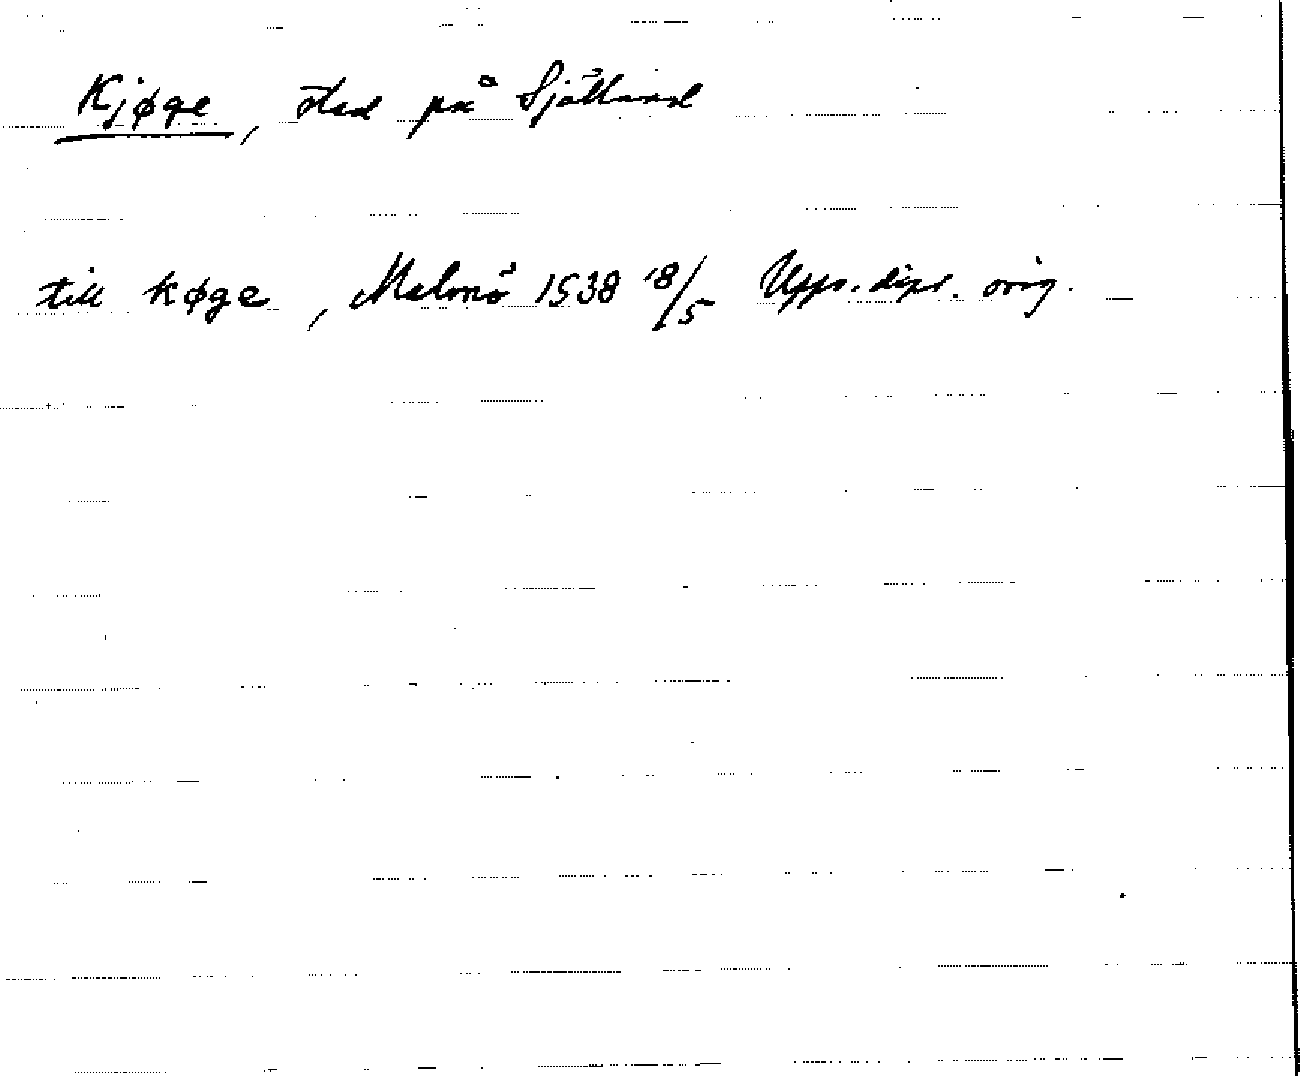 Kjøge, stad på Själland
till køge, Malmö 1538 18/5 Upps. dipl. orig.